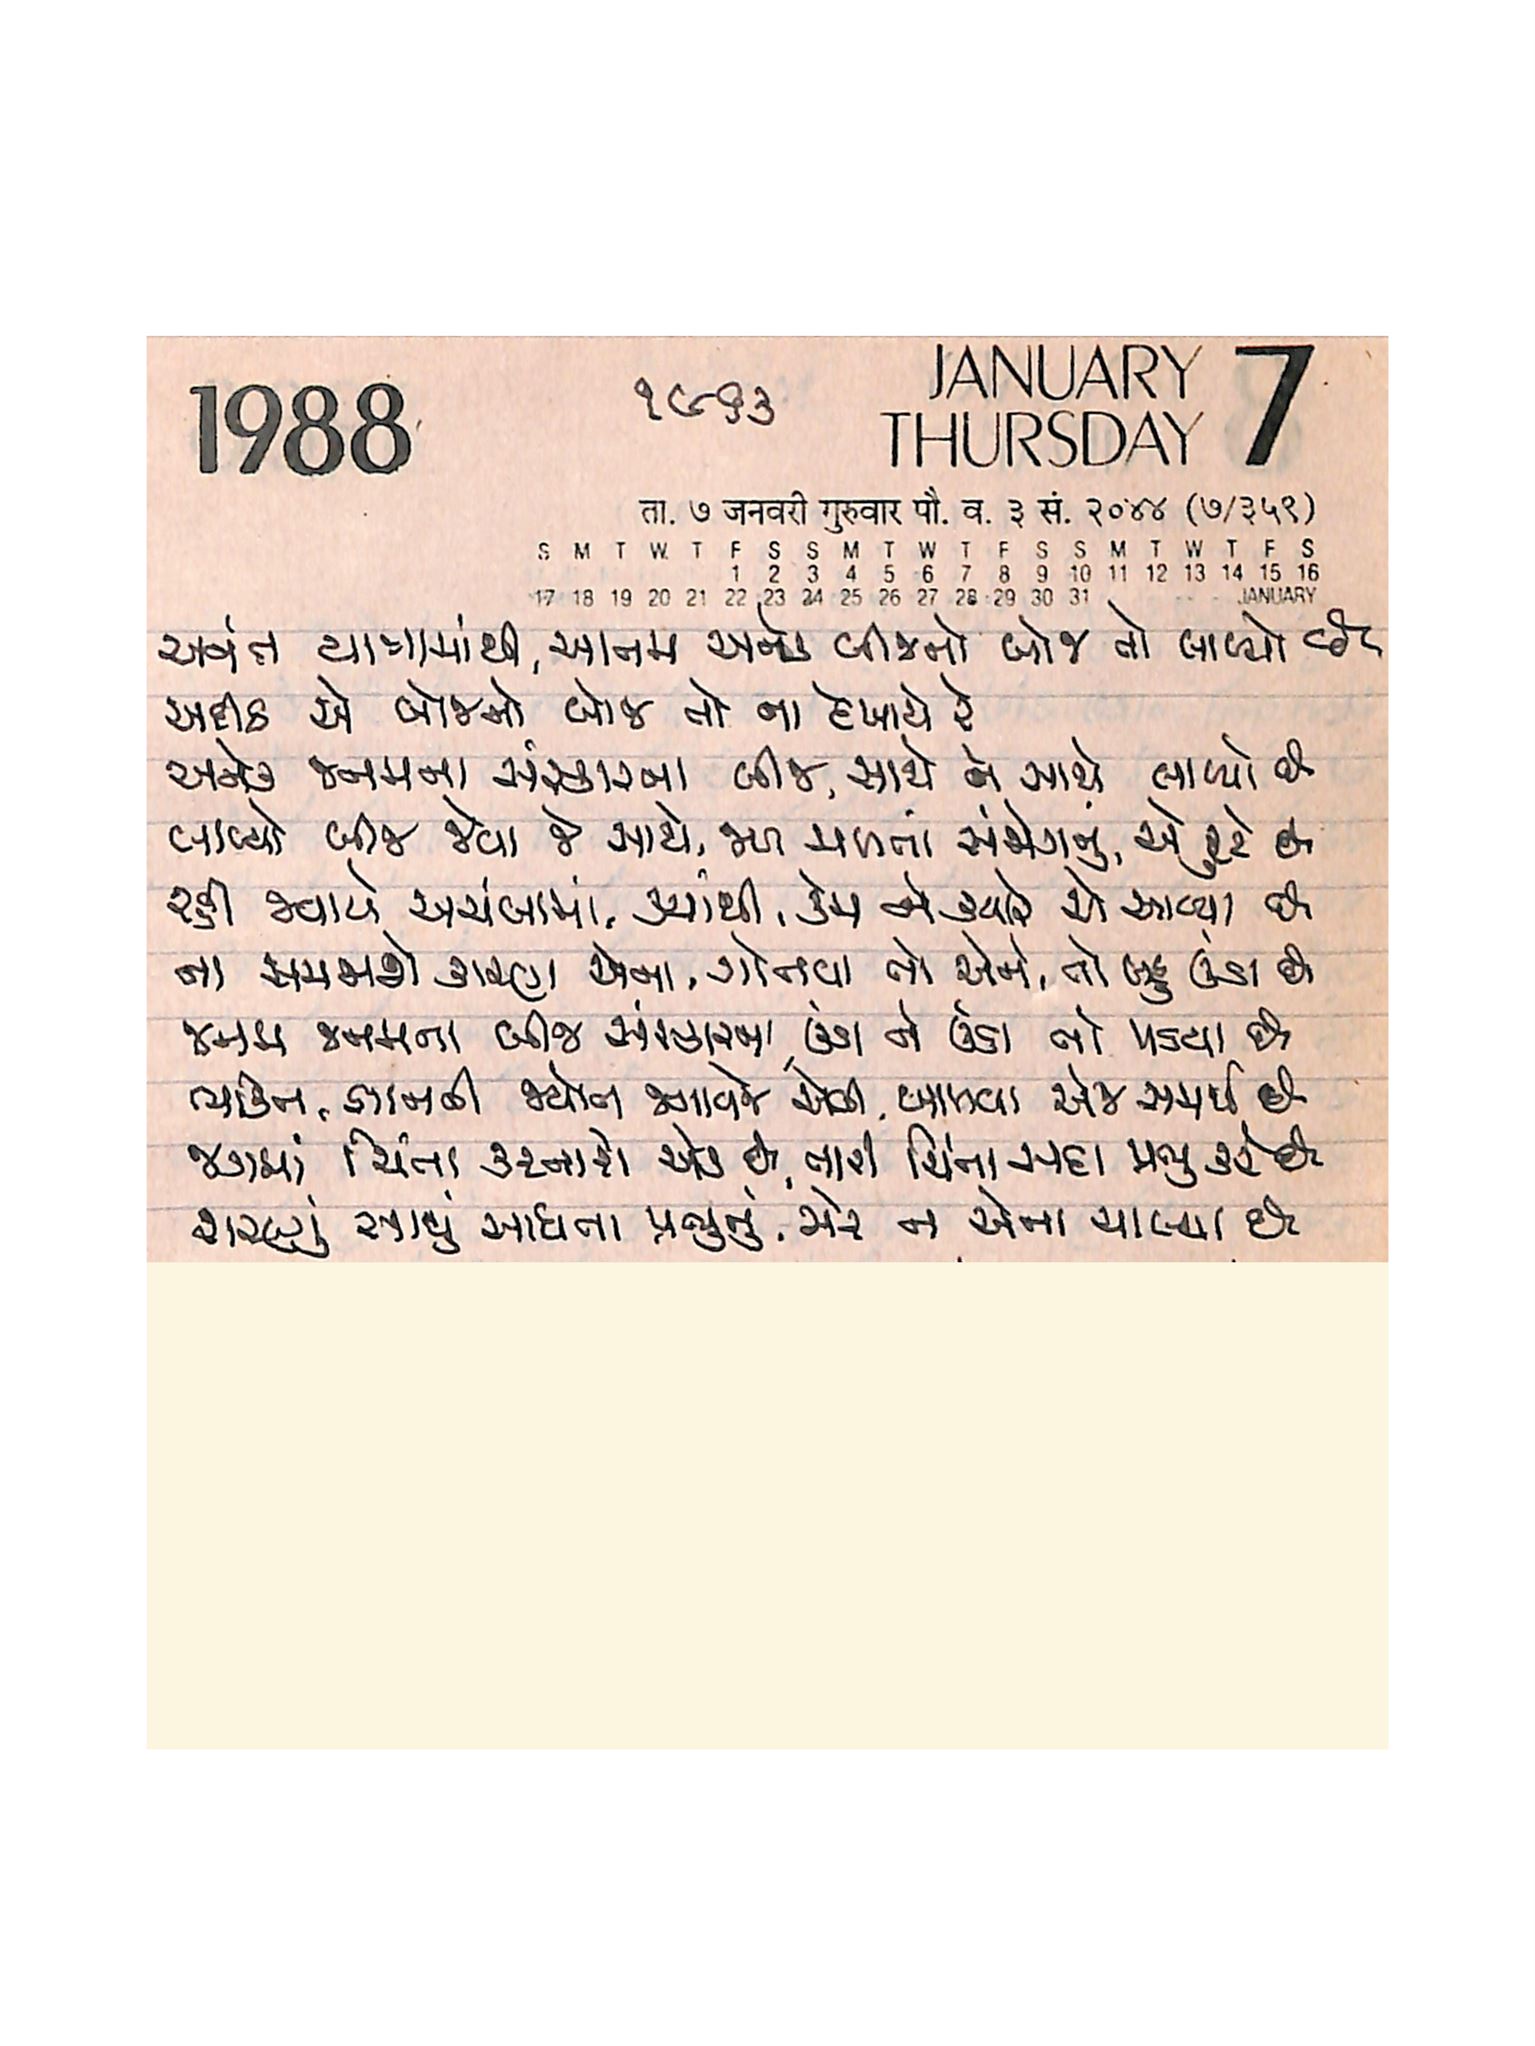 1988
૧૯૧૩
JANUARY 7
THURSDAY
ता. ७ जनवरी गुरुवार पौ. व. ३ सं. २०४४ (७/३५९)
S M T W T F S S M T W T F S S M T W T F S
1 2 3 4 5 6 7 8 9 10 11 12 13 14 15 16
17 18 19 20 21 22 23 24 25 26 27 28 29 30 31 JANUARY
અનંત યાત્રામાંથી, આનમ અનેક બીજનો બોજ તો લાવ્યો છે
અદીઠ એ બોજનો બોજ તો ના દેખાયે રે
અનેક જનમના સંસ્કારના બીજ, સાથે ને સાથે લાવ્યો છે
લાવ્યો બીજ જેવા જે સાથે, જળ મળતાં સંજોગનું, એ ફુટે છે
રહી જવાયે અચંબામાં, ક્યાંથી, કેમ ને ક્યારે એ આવ્યા છે
ના સમજાશે કારણ એના, ગોતવા તો એને, તો બહુ ઉંડા છે
જનમ જનમના બીજ સંસ્કારના, ઉંડા ને ઉંડા તો પડ્યા છે
ભક્તિ, જ્ઞાનની જ્યોત જલાવજે એવી, બાળવા એજ સમર્થ છે
જગમાં ચિંતા કરનારો એક છે, તારી ચિંતા સદા પ્રભુ કરે છે
શરણું સાચું સાધના પ્રભુનું, મેર ન એના ચાલ્યા છે